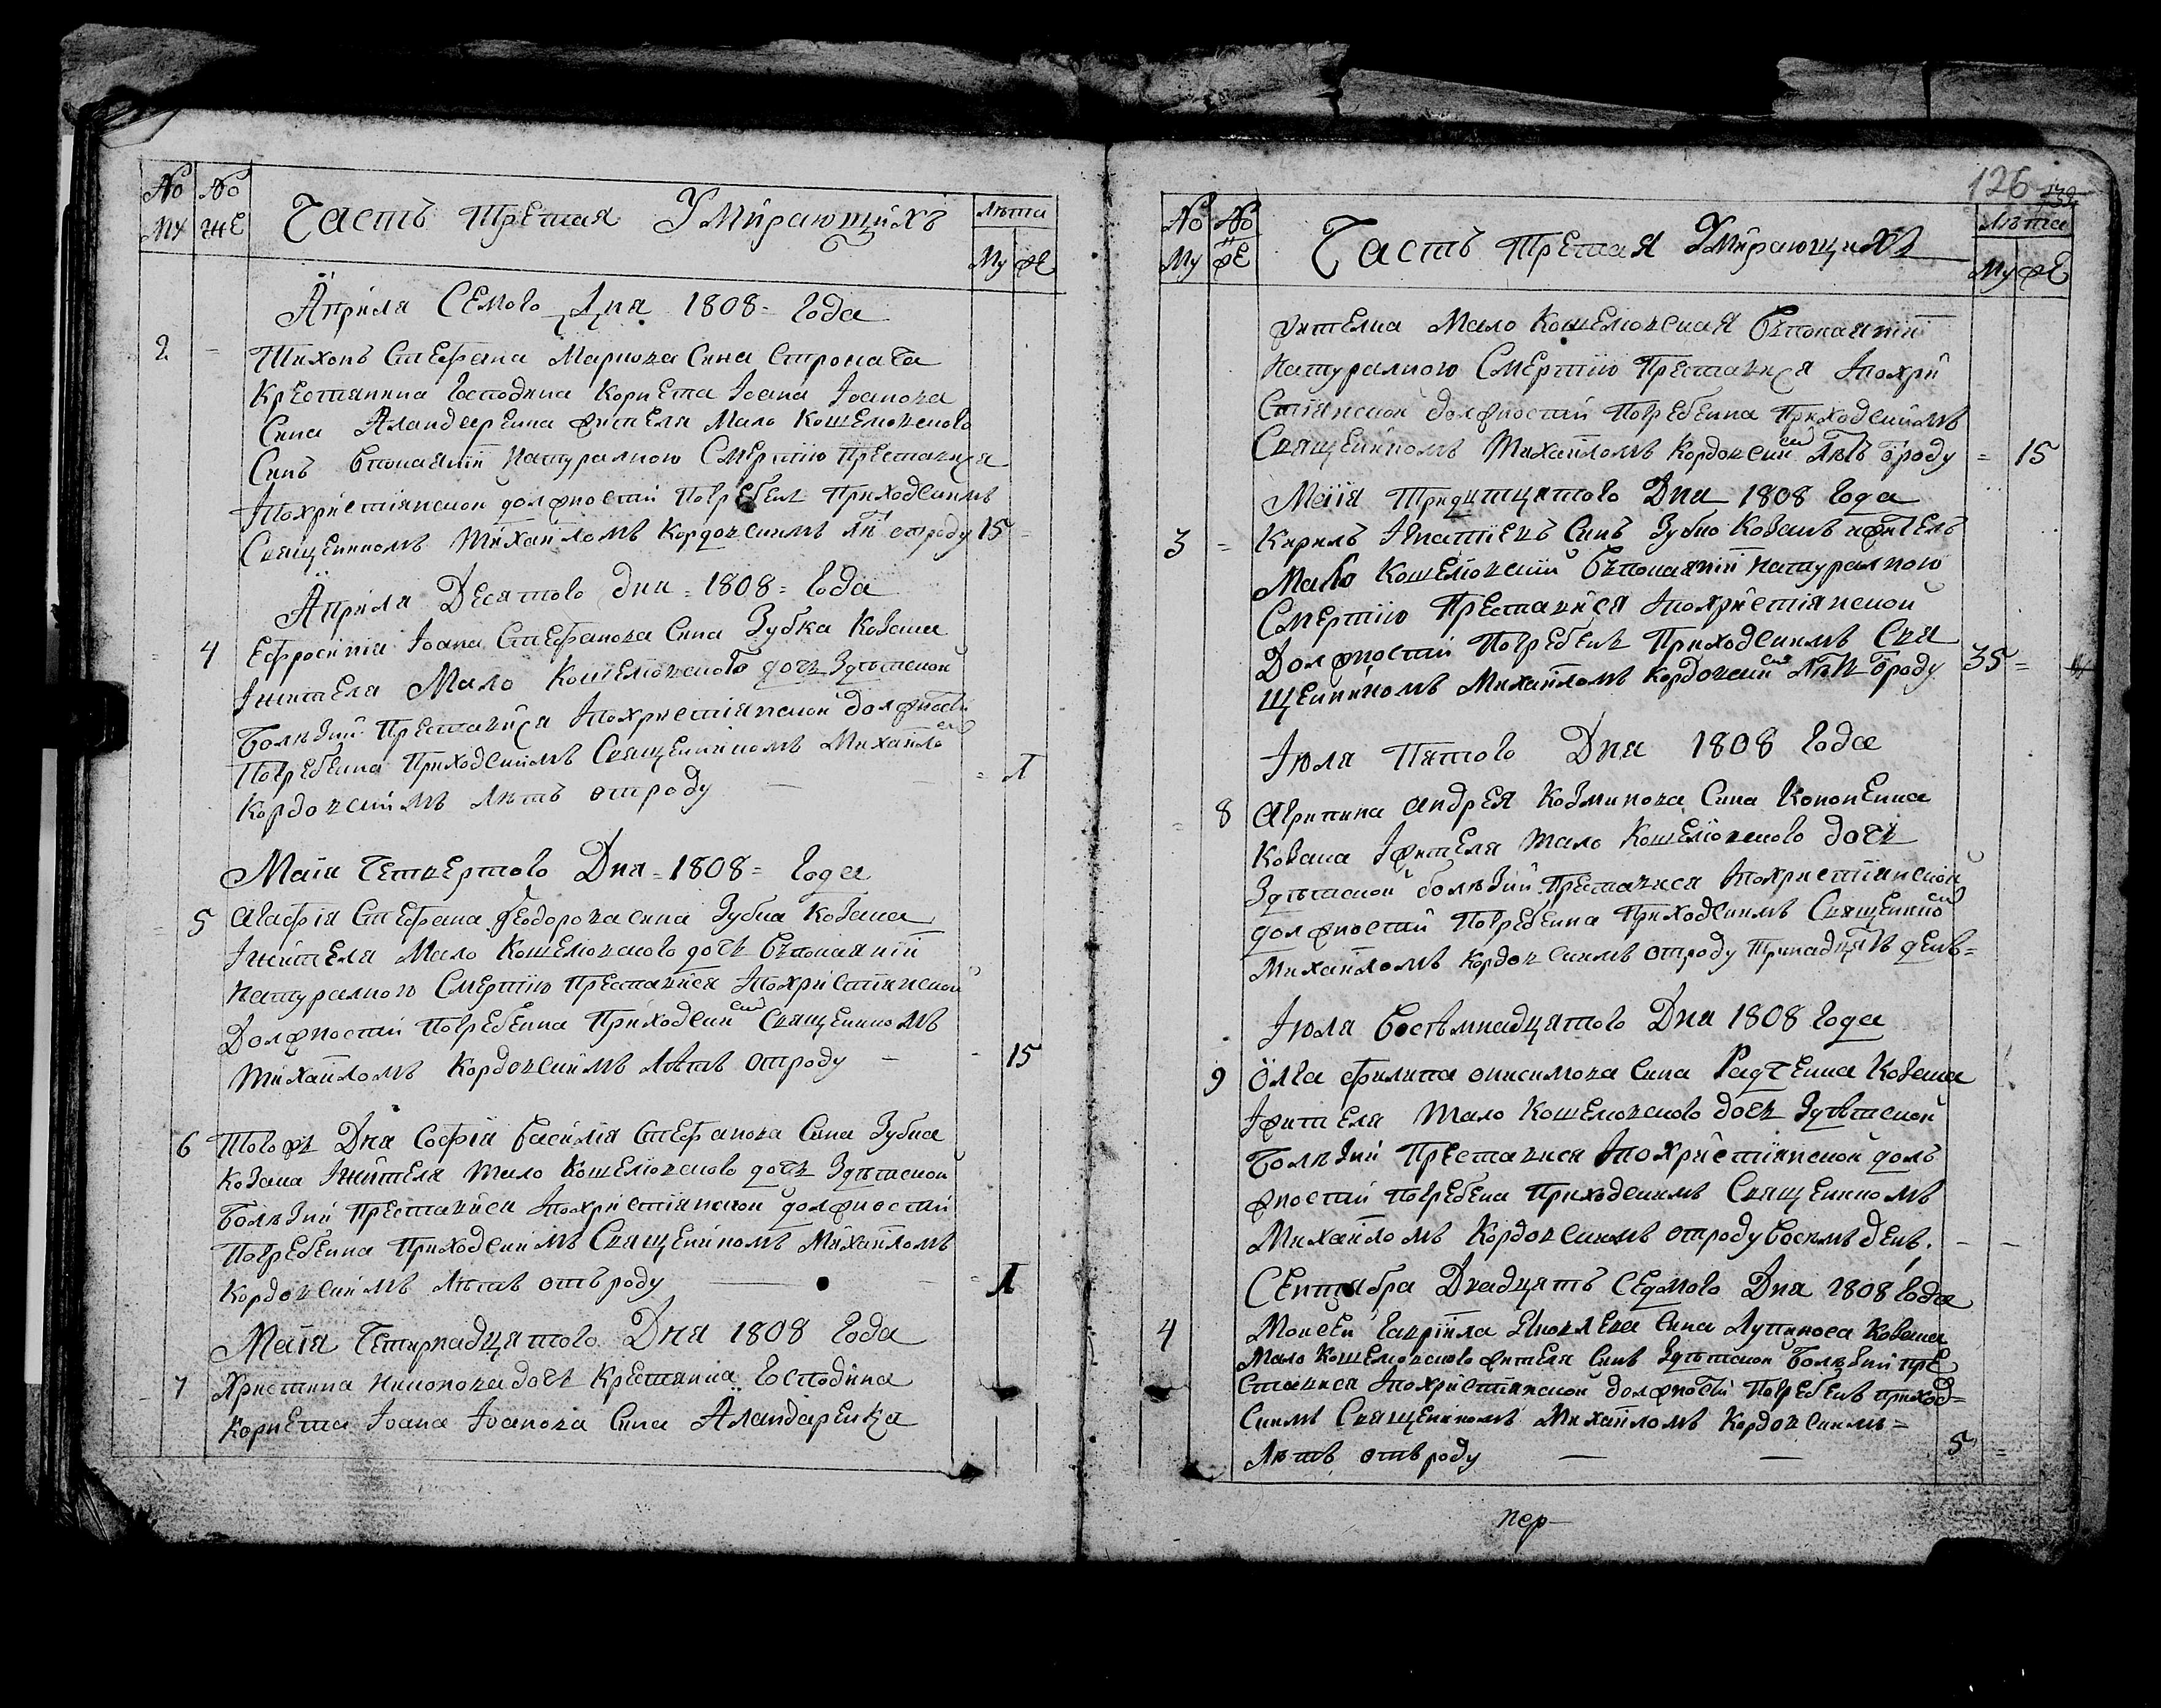 № Му
№ же
Часть третая Умирающихъ
Лѣта
Му же
Априля Семого Дня 1808 = Года
2 =
Тихонъ Стефана Маркова Сина Строкача
Крестянина Господина Корнета Іоана Іоанова
Сина Аландаренка жителя Мало Кошелювского
Синъ впокаянїи Натуралною Смертію Преставися
Іпохристіянской должностій Погребенъ Приходскимъ
Священникомъ Михаиломъ Кордовскимъ лѣ отроду 15 =
Априля Десятого дня = 1808 = Года
= 4
Ефросинїа Іоана Стефанова Сина Зубка Козака
Іжителя Мало Кошелювского дочь Здѣтской
Болѣзни Преставися Іпохристіянской должности
Погребенна Приходскимъ Священникомъ Михаило
Кордовскимъ лѣтъ отроду = 1
Маїя Четвертого Дня = 1808 = Года
= 5
Агафія Стефана Феодорова сина Зубка Козака
Іжителя Мало Кошелювского дочь Въпокаянїи
Натуралного Смертію Преставися Іпохристіянской
Должностій Погребенна Приходским Священикомъ
Михаиломъ Кордовскимъ лѣтъ отроду - - 15
6
Того жъ Дня Софїа Василїа Стефанова Сина Зубка
Козака Іжителя Мало Кошелювского дочь Здѣтской
Болѣзни Преставися Іпохристіянской должностій
Погребенна Приходскимъ Священикомъ Михаиломъ
Кордовскимъ лѣтъ отъ роду - = 1
Маїя Четирнадцятого Дня 1808 Года
- 7
Христина Никонова дочь Крестянина Господина
Корнета Іоана Іоанова Сина Аландаренка
126 132
№ Му
№ же
Часть третая Умирающихъ
Лѣта
Му же
жителка Мало Кошелювская Въпокаянїи
Натуралною Смертію Преставися Іпохри
Стіянской должностій Погребенна Приходскимъ
Священикомъ Михаиломъ Кордовским Лѣтъ ѿроду = 15
Маїя Тридцятцятого Дня 1808 Года
3 =
Кирилъ Игнатіевъ Синъ Зубко Козакъ ижитель
Мало Кошелювскій Въпокаянїи Натуралною
Смертію Преставися Іпохристіянской
Должностій Погребенъ Приходскимъ Свя
Щенникомъ Михаиломъ Кордовским Лѣтъ ѿроду 35 =
Іюля Пятого Дня 1808 Года
= 8
Агрипина Андрея Козминова Сина Кононенка
Козака Іжителя Мало Кошелювского дочь
Здѣтской болѣзни Преставися Іпохристіянской
должностій Погребенна Приходскимъ Священико
Михаиломъ Кордовскимъ отроду Тринадцять денъ =
Іюля Восѣмнадцятого Дня 1808 Года
9
Ольга Филипа Онисимова Сина Радченка Козака
Іжителя Мало Кошелювского дочь Здѣтской
Болѣзни Преставися Іпохристіянской долъ
жностій погребена Приходскимъ Священикомъ
Михаиломъ Кордовскимъ отроду Восимъ денъ. - -
Сентября Двадцять Седмого Дня 1808 Года
4
Моисей Гавріила Яковлева Сина Лупиноса Козака
Мало Кошелювского жителя Синъ Здѣтской Болѣзни пре
Ставися Іпохристіянской должности Погребенъ приход=
Скимъ Священикомъ Михаиломъ Кордовскимъ =
Лѣтъ отъ роду - - 5 =
пер-